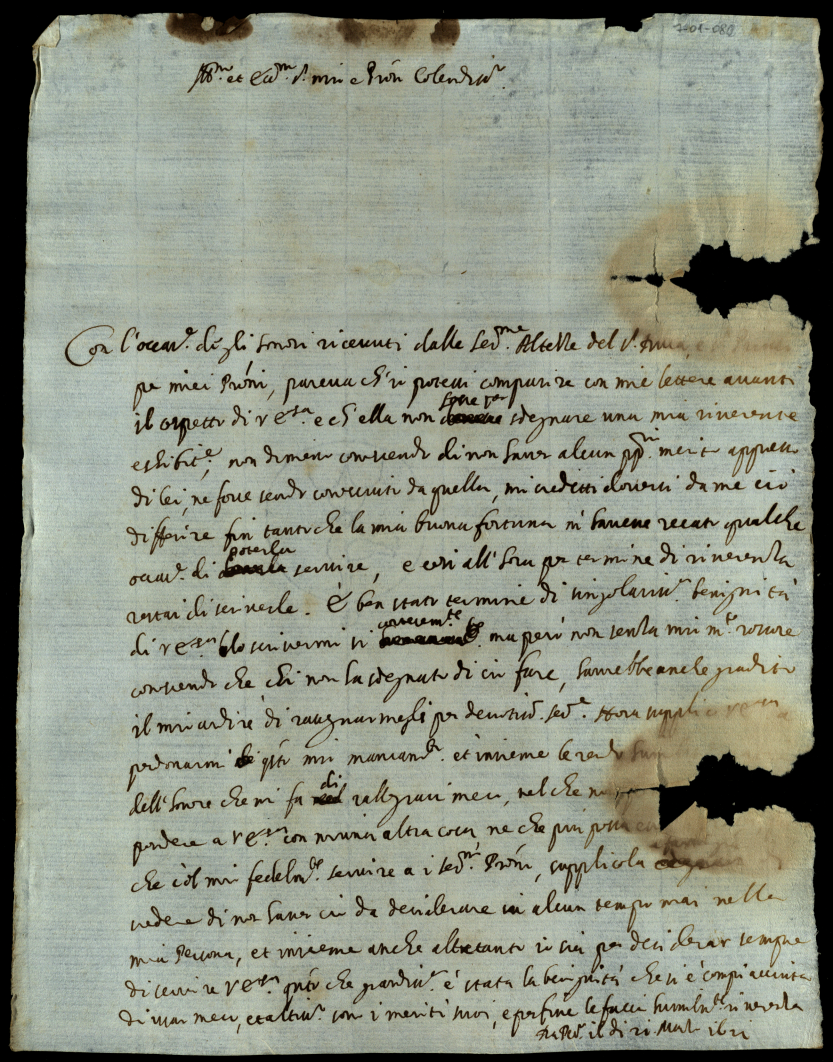 7-01-080
Ill.mo et Ecc.mo S.r mio e Pròn Colendiss.o
Con l'occas.e degli honori ricevuti dalle Ser.me Altezze del S.r Duca, e
pe miei Pròni, pareva ch'io potessi comparire con mie lettere avanti
il cospetto di V Ecc.za e ch'ella non fosse per sdegnare una mia riverente
esibit.e, non dimeno conoscendo di non haver alcun merito appresso
di lei, ne forse sendo conosciuto da quella, mi credetti doversi da me ciò
differire fin tanto che la mia buona fortuna m'havesse recato qualche
occas.e di poterla servire, e così all'hora per termine di riverenza
restai di scriverle. È ben stato termine di singolariss.a benignità
di V Ecc.za lo scrivermi si cortesem.te ma però non senza mio m.o rossore
conoscendo che, chi non ha sdegnato di ciò fare, havrebbe anche gradito
il mio ardire di rassegnarmegli per devotiss.o ser.e Hora supplico V Ecc.za
perdonarmi di q.sto mio mancam.to et insieme le rendo
dell'honore che mi fa di rallegrarsi meco, nel che non
pondere a V Ecc.za con niuna altra cosa, ne che più possa
che col mio fedelm.te servire a i ser.mi Pròni, supplicola
credere di non haver ciò da desiderare in alcun tempo mai nella
mia Persona, et insieme anche altretanto io sia per desiderar sempre
di servire V Ecc.za q.nto che grandiss.a è stata la benignità che si è compiacciuta
di usar meco, et altiss.i sono i meriti suoi, e per fine le faccio humiliss.a riverenza
il dì